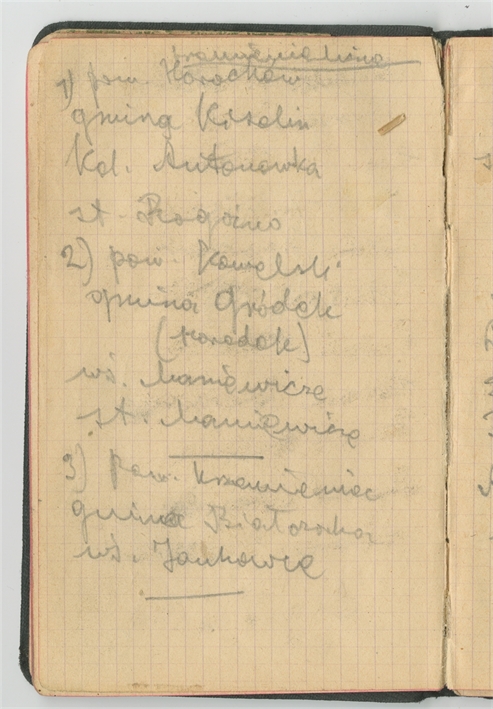 1) pow. Horochów
gmina Kisielin
Kol. Antonówka
st. Rogoźno
2) pow. Kowelski
gmina Gródek
(Horodok)
wś. Maniewicze
st. Maniewicze
3) pow. Krzemieniec
gmina Białozorka
wś. Jankowce